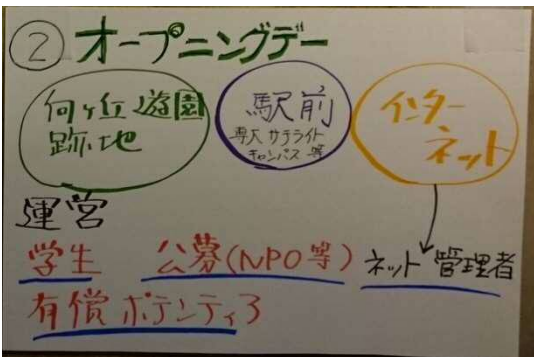 ② オープニングデー
向ヶ丘遊園
跡地
駅前
専大サテライト
キャンパス等
インター
ネット
運営
学生 公募(NPO等) ネット管理者
有償ボランティア